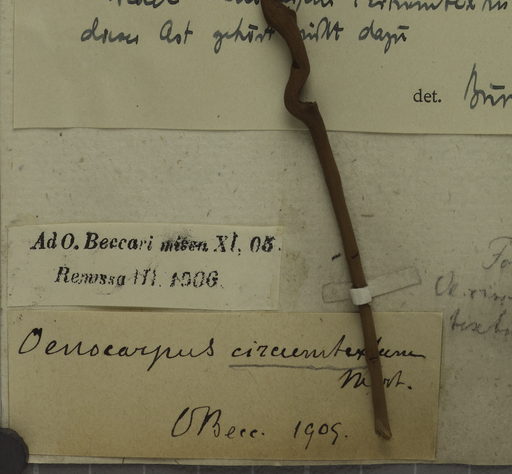 dieser Ast gehört nicht dazu
det.
Ad O. Beccari missa XI. 05.
Remissa III. 1906
Oenocarpus circumtextum
Mart.
OBecc. 1909.